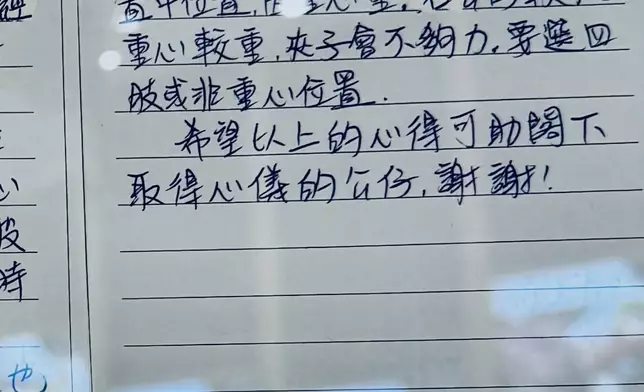 重心較重,夾子會不夠力,要選四
肢或非重心位置.
希望以上的心得可助閣下
取得心儀的公仔,謝謝!
心
皮
時
也